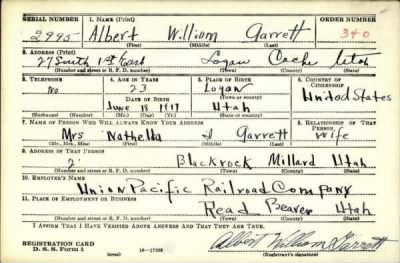 SERIAL NUMBER 1. NAME (Print) ORDER NUMBER
2995 Albert William Garrett 340
(First) (Middle) (Last)
2. ADDRESS (Print)
27 South 1st East Logan Cache Utah
(Number and street or R. F. D. number) (Town) (County) (State)
3. TELEPHONE 4. AGE IN YEARS 5. PLACE OF BIRTH 6. COUNTRY OF CITIZENSHIP
no 23 Logan
DATE OF BIRTH (Town or county) United States
June 18 1917 Utah
(Exchange) (Number) (Mo.) (Day) (Yr.) (State or country)
7. NAME OF PERSON WHO WILL ALWAYS KNOW YOUR ADDRESS 8. RELATIONSHIP OF THAT PERSON
Mrs Garrett wife
(Mr., Mrs., Miss) (First) (Middle) (Last)
9. ADDRESS OF THAT PERSON
Blackrock Millard Utah
(Number and street or R. F. D. number) (Town) (County) (State)
10. EMPLOYER'S NAME
Union Pacific Railroad Company
11. PLACE OF EMPLOYMENT OR BUSINESS
Read Beaver Utah
(Number and street or R. F. D. number) (Town) (County) (State)
I AFFIRM THAT I HAVE VERIFIED ABOVE ANSWERS AND THAT THEY ARE TRUE.
REGISTRATION CARD
D. S. S. Form 1 (over) Albert William Garrett
(Registrant's signature)